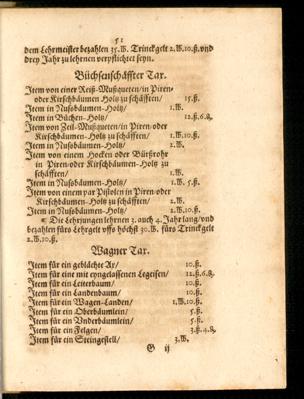 51
dem Lehrmeister bezahlen 35.W. Trinckgelt 2.W.10.ß. vnd
drey Jahr zu lehrnen verpflichtet seyn.
Büchsenschäffter Tax.
Item von einer Reiß-Mußqueten/ in Piren-
oder Kirschbäumen-Holtz zu schäfften/ 15.ß.
Item in Nussbäumen-Holtz/ 1.W.
Item in Büchen-Holtz/ 12.ß.6.₰.
Item von Zeil-Mußqueten/ in Piren oder
Kirschbäumen-Holtz zu schäfften/ 1.W.10.ß.
Item in Nussbäumen-Holtz/ 2.W.
Item von einem Hocken oder Bürßrohr
in Piren-oder Kirschbäumen-Holtz zu
schäfften/ 1.W.
Item in Nussbäumen-Holtz/ 1.W. 5.ß.
Item von einem par Pistolen in Piren-oder
Kirschbäumen-Holtz zu schäfften/ 2.W.
Item in Nussbäumen-Holtz/ 2.W.10.ß.
Die Lehrjungen lehrnen 3. auch 4. Jahr lang/ vnd
bezahlen fürs Lehrgelt vffs höchst 30.W. fürs Trinckgelt
2.W.10.ß.
Wagner Tax.
Item für ein geblächte Ax/ 10.ß.
Item für eine mit eyngelassenen Legeisen/ 12.ß.6.₰.
Item für ein Leiterbaum/ 10.ß.
Item für ein Landenbaum/ 10.ß.
Item für ein Wagen-Landen/ 1.W.10.ß.
Item für ein Oberbäumlein/ 5.ß.
Item für ein Vnderbäumlein/ 5.ß.
Item für ein Felgen/ 3.ß.4.₰.
Item für ein Steingestell/ 3.W.
G ij